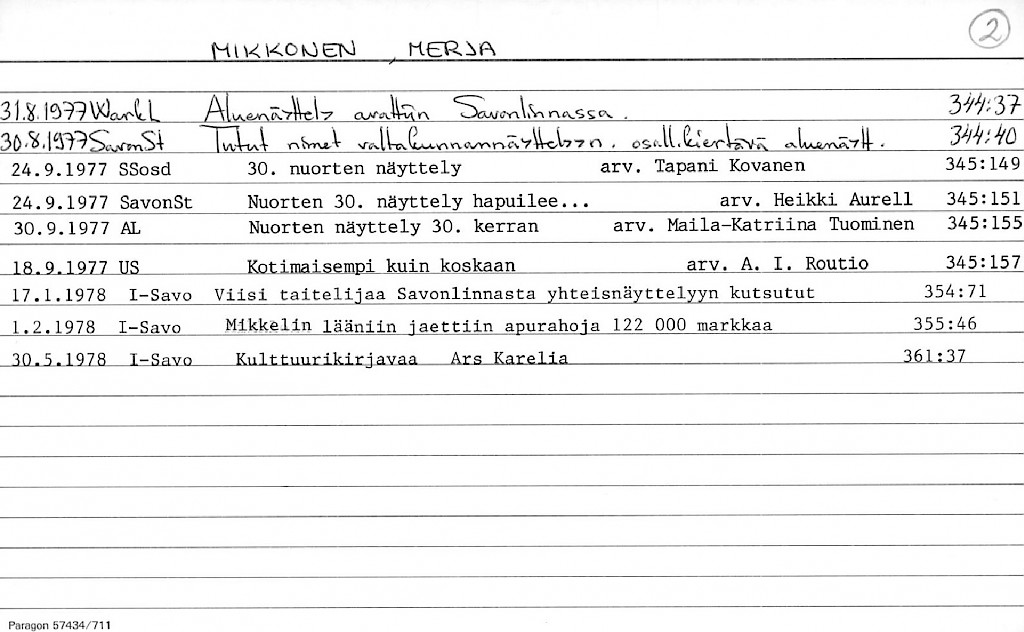 2
MIKKONEN, MERJA
31.8.1977 WarkL Aluenäyttely avattiin Savonlinnassa. 344:37
30.8.1977 SavonSt Tutut nimet valtakunnannäyttelyyn. osall.kiertävä aluenäytt. 344:40
24.9.1977 SSosd 30. nuorten näyttely arv. Tapani Kovanen 345:149
24.9.1977 SavonSt Nuorten 30. näyttely hapuilee... arv. Heikki Aurell 345:151
30.9.1977 AL Nuorten näyttely 30. kerran arv. Maila-Katriina Tuominen 345:155
18.9.1977 US Kotimaisempi kuin koskaan arv. A. I. Routio 345:157
17.1.1978 I-Savo Viisi taitelijaa Savonlinnasta yhteisnäyttelyyn kutsutut 354:71
1.2.1978 I-Savo Mikkelin lääniin jaettiin apurahoja 122 000 markkaa 355:46
30.5.1978 I-Savo Kulttuurikirjavaa Ars Karelia 361:37
Paragon 57434/711